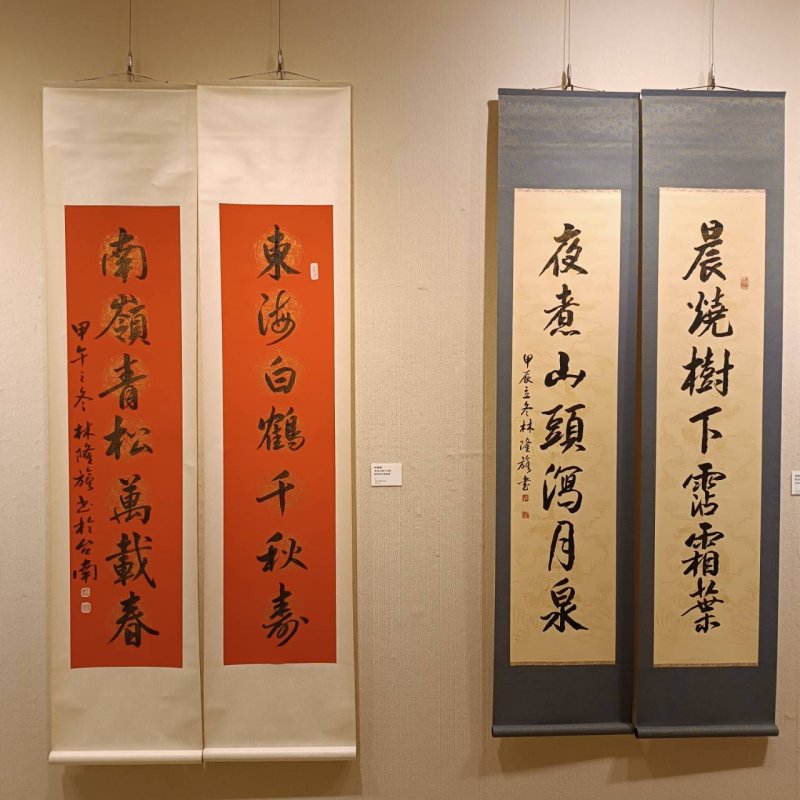 晨燒樹下霑霜葉
夜煮山頭瀉月泉
甲辰立冬林隆書
東海白鶴千秋壽
南嶺青松萬載春
甲午之冬林隆書於台南